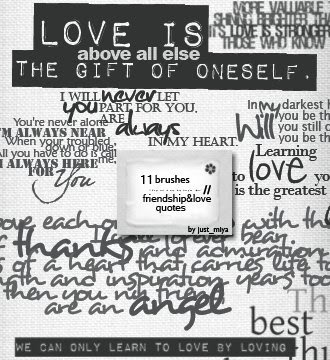 LOVE IS
above all else
THE GIFT OF ONESELF.
MORE VALUABLE
SHINING BRIGHTER
LOVE IS STRONGER
THOSE WHO KNOW
I WILL never LET
you PART FOR YOU,
ARE
always
IN MY HEART.
You're never alone
I'M ALWAYS NEAR
When your troubled,
down or blue,
All you have to do is call
I'M ALWAYS HERE
FOR You
In my darkest h
you be th
you still c
Will you be th
Learning
to love yo
is the greatest
11 brushes
//
friendship&love
quotes
by just_miya
ove each
with th
forever bear
of thanks and admiration
s of a heart that carries life to
ngth and inspiration years too
then you my friend
are an angel
The
best
th
WE CAN ONLY LEARN TO LOVE BY LOVING